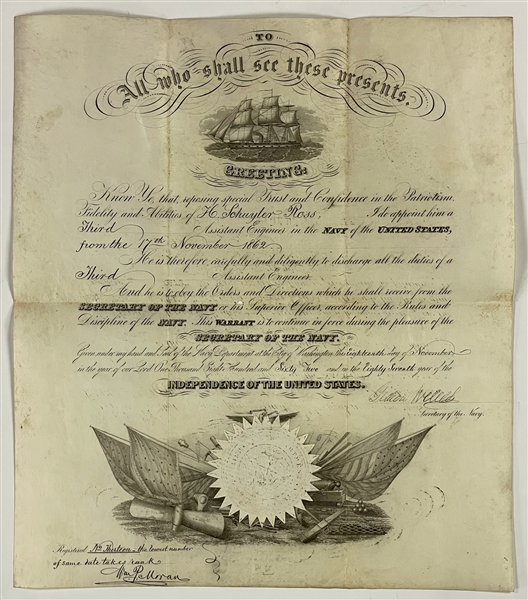 TO
All who shall see these presents,
GREETING:
Know Ye, that, reposing special Trust and Confidence in the Patriotism,
Fidelity and Abilities of H. Schuyler Ross, I do appoint him a
Third Assistant Engineer in the NAVY of the UNITED STATES,
from the 17th November 1862
He is therefore, carefully and diligently to discharge all the duties of a
Third Assistant Engineer
And he is to obey the Orders and Directions which he shall receive from the
SECRETARY OF THE NAVY or his Superior Officer, according to the Rules and
Discipline of the NAVY. This WARRANT is to continue in force during the pleasure of the
SECRETARY OF THE NAVY.
Given under my hand and Seal of the Navy Department at the City of Washington this eighteenth day of November
in the year of our Lord One Thousand Eight Hundred and Sixty Two and in the Eighty Seventh year of the
INDEPENDENCE OF THE UNITED STATES.
Gideon Welles
Secretary of the Navy.
Registered No. Thirteen - the lowest number
of same date takes rank
Wm P. Moran